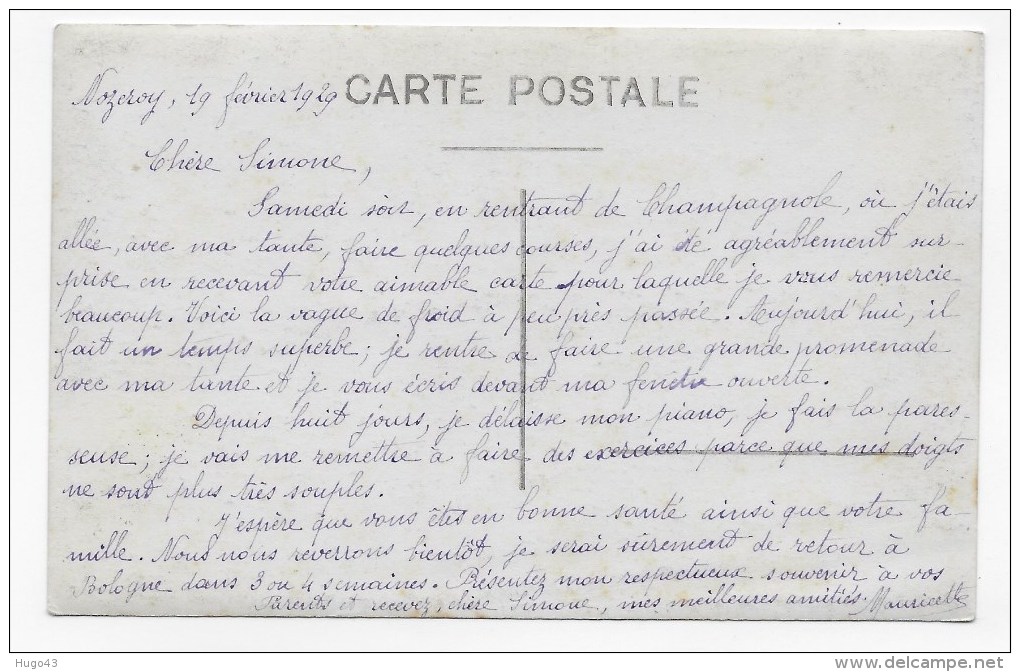 Nozeroy, 19 février 1929
CARTE POSTALE
Chère Simone,
Samedi soir, en rentrant de Champagnole, où j'étais
allée, avec ma tante, faire quelques courses, j'ai été agréablement sur-
prise en recevant votre aimable carte pour laquelle je vous remercie
beaucoup. Voici la vague de froid à peu près passée. Aujourd'hui, il
fait un temps superbe ; je rentre de faire une grande promenade
avec ma tante et je vous écris devant ma fenêtre ouverte.
Depuis huit jours, je délaisse mon piano, je fais la pares-
seuse ; je vais me remettre à faire des exercices parce que mes doigts
ne sont plus très souples.
J'espère que vous êtes en bonne santé ainsi que votre fa-
mille. Nous nous reverrons bientôt, je serai sûrement de retour à
Bologne dans 3 ou 4 semaines. Présentez mon respectueux souvenir à vos
Parents et recevez, chère Simone, mes meilleures amitiés. Mauricette
Hugo43
www.delcampe.net